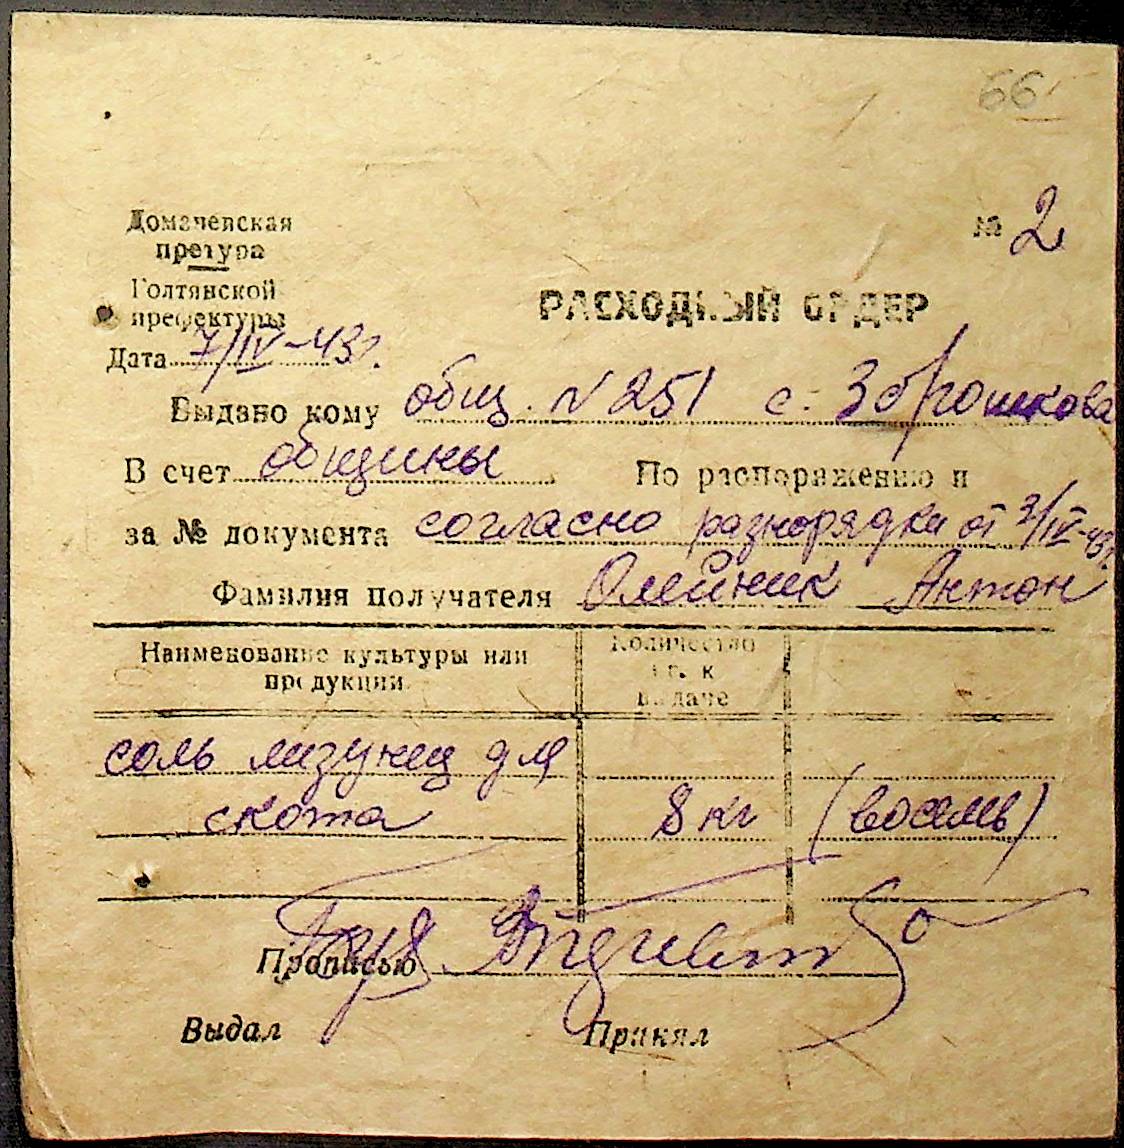 66
Домачевская
претура
№ 2
Голтянской
префектуры
РАСХОДНЫЙ ОРДЕР
Дата 7/IV-43г.
Выдано кому общ. N 251 с. Зброшкова
В счет общины По распоряжению и
за № документа согласно разнорядки от 3/IV-43г.
Фамилия получателя Олейник Антон
Наименование культуры или
продукции
Количество
кг. к
выдаче
соль лизунец для
скота 8 кг (восемь)
Прописью
Выдал Принял